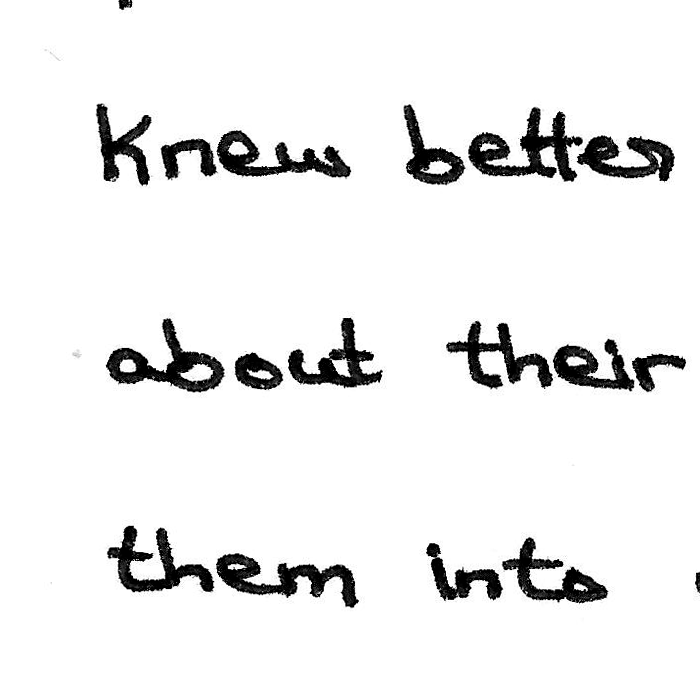 Knew better
about their
them into